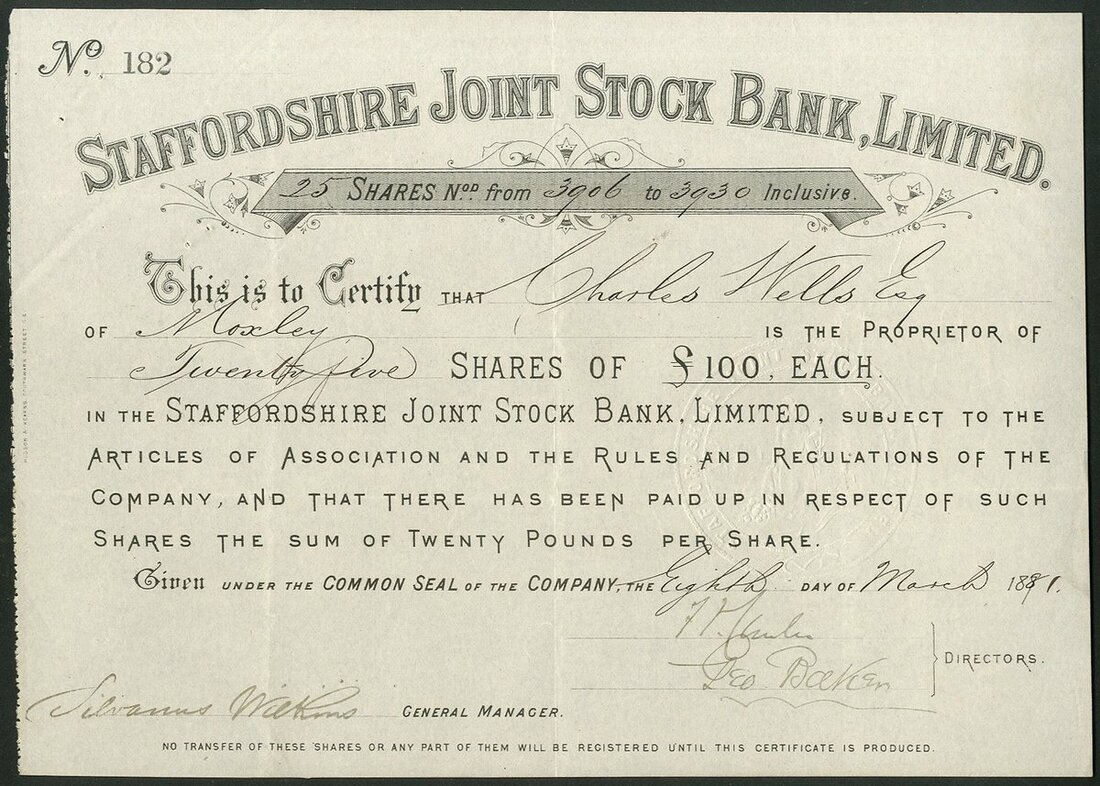 No. 182
STAFFORDSHIRE JOINT STOCK BANK, LIMITED.
25 SHARES NOD. from 3906 to 3930 Inclusive.
This is to Certify THAT Charles Wells Esq
OF Moxley IS THE PROPRIETOR OF
Twenty five SHARES OF £100, EACH.
IN THE STAFFORDSHIRE JOINT STOCK BANK, LIMITED, SUBJECT TO THE
ARTICLES OF ASSOCIATION AND THE RULES AND REGULATIONS OF THE
COMPANY, AND THAT THERE HAS BEEN PAID UP IN RESPECT OF SUCH
SHARES THE SUM OF TWENTY POUNDS PER SHARE.
Given UNDER THE COMMON SEAL OF THE COMPANY, THE Eighth DAY OF March 1881.
Geo Baker
DIRECTORS.
Silvanus Wilkins GENERAL MANAGER.
NO TRANSFER OF THESE SHARES OR ANY PART OF THEM WILL BE REGISTERED UNTIL THIS CERTIFICATE IS PRODUCED.